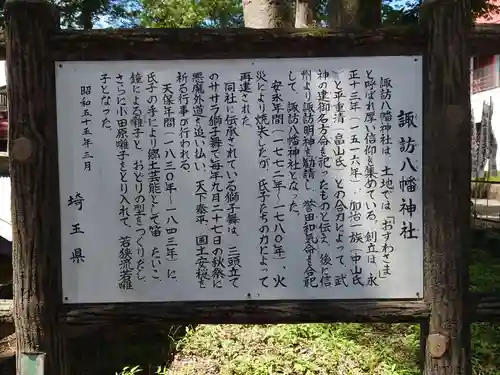 諏訪八幡神社
諏訪八幡神社は、土地では「おすわさま」
と呼ばれ厚い信仰を集めている。創立は、永
正十三年（一五一六年）、加治一族（中山氏
と平重清（畠山氏）との合力によって、武
神の建御名方命を祀ったものと伝え、後に信
州より諏訪明神を勧請し、誉田和気命を合祀
して、諏訪八幡神社となった。
安永年間（一七七二年〜一七八〇年）、火
災により焼失したが、氏子たちの力によって
再建された。
同社に伝承されている獅子舞は、三頭立て
のササラ獅子舞で毎年九月二十七日の秋祭に
悪魔外道を追い払い、天下泰平、国土安穏を
祈る行事が行われる。
天保年間（一八三〇年〜一八四三年）に
氏子の手により郷土芸能として笛、たいこ、
鐘による囃子と、おどりの型をつくりだし、
さらに小田原囃子をとり入れて、若狭流若雛
子となった。
昭和五十五年三月
埼玉県